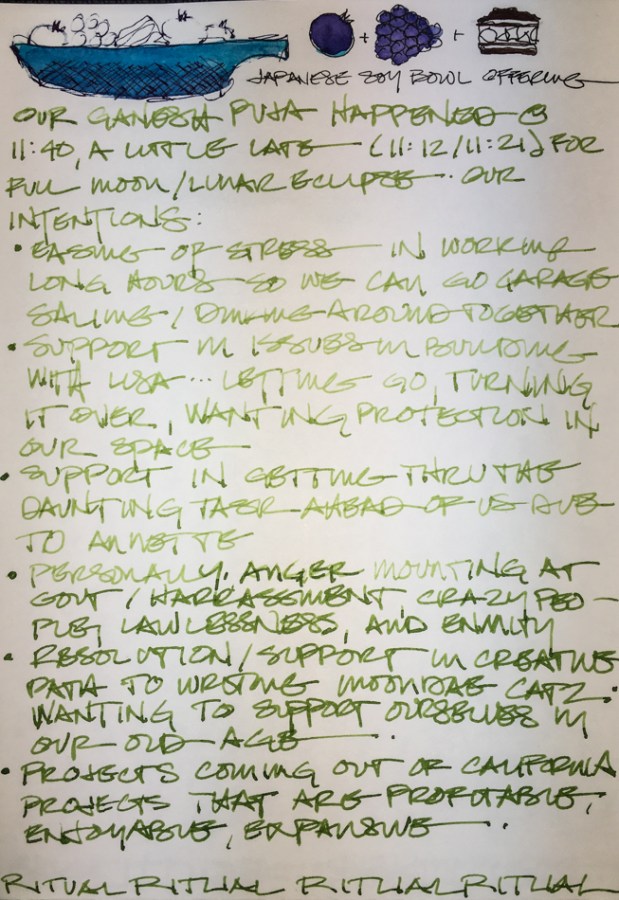 JAPANESE SOY BOWL OFFERING
OUR GANESH PUJA HAPPENED @
11:40, A LITTLE LATE (11:12/11:21) FOR
FULL MOON/LUNAR ECLIPSE. OUR
INTENTIONS:
• EASING OF STRESS IN WORKING
LONG HOURS SO WE CAN GO GARAGE
SALING/DINKING AROUND TOGETHER
• SUPPORT IN ISSUES IN BUILDING
WITH LISA... LETTING GO, TURNING
IT OVER, WANTING PROTECTION IN
OUR SPACE
• SUPPORT IN GETTING THRU THE
DAUNTING TASK AHEAD OF US DUE
TO ANNETTE
• PERSONALLY, ANGER MOUNTING AT
GOVT/HARRASSMENT, CRAZY PEO-
PLE, LAWLESSNESS, AND ENMITY
• RESOLUTION/SUPPORT IN CREATIVE
PATH TO WRITING MOONDAE CATZ.
WANTING TO SUPPORT OURSELVES IN
OUR OLD AGE.
• PROJECTS COMING OUT OF CALIFORNIA
PROJECTS THAT ARE PROFITABLE,
ENJOYABLE, EXPANSIVE.
RITUAL RITUAL RITUAL RITUAL